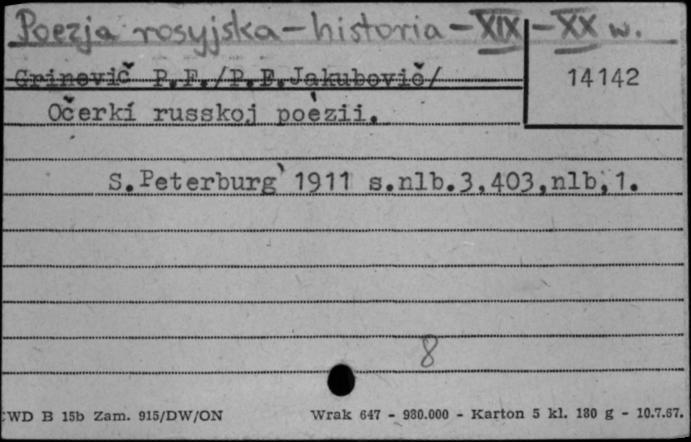 Poezja rosyjska - historia - XIX - XX w.
Grinevič P.F./P.F.Jakubovič/
14142
Očerkí russkoj poèzii.
S.Peterburg` 1911 s.nlb.3,403,nlb,1.
8
WD B 15b Zam. 915/DW/ON Wrak 647 - 980.000 - Karton 5 kl. 180 g - 10.7.67.